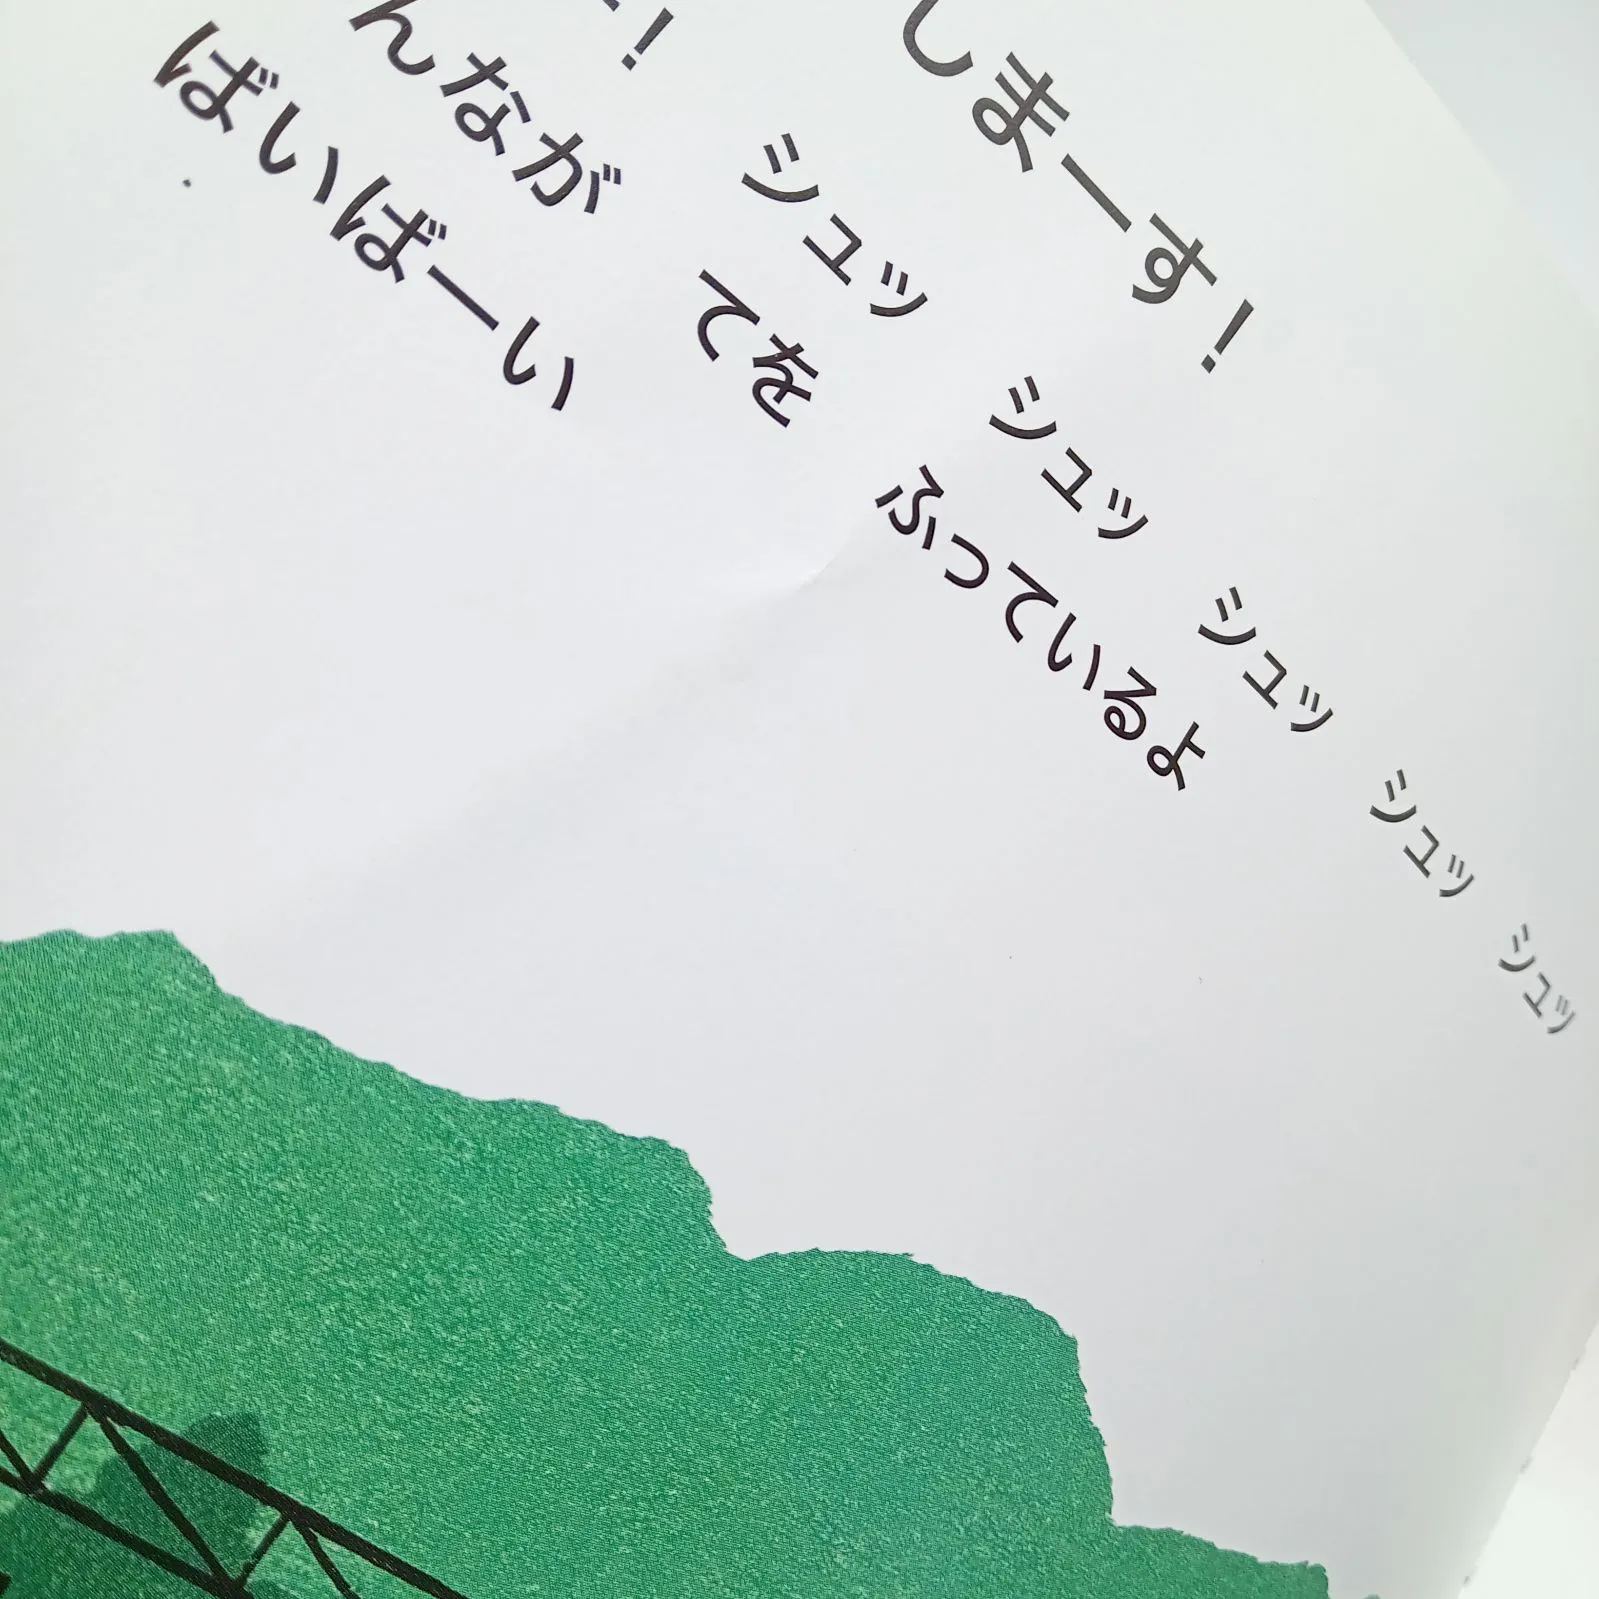 しまーす！
ー！ シュッ シュッ シュッ シュッ シュッ
んなが てを ふっているよ
ばいばーい